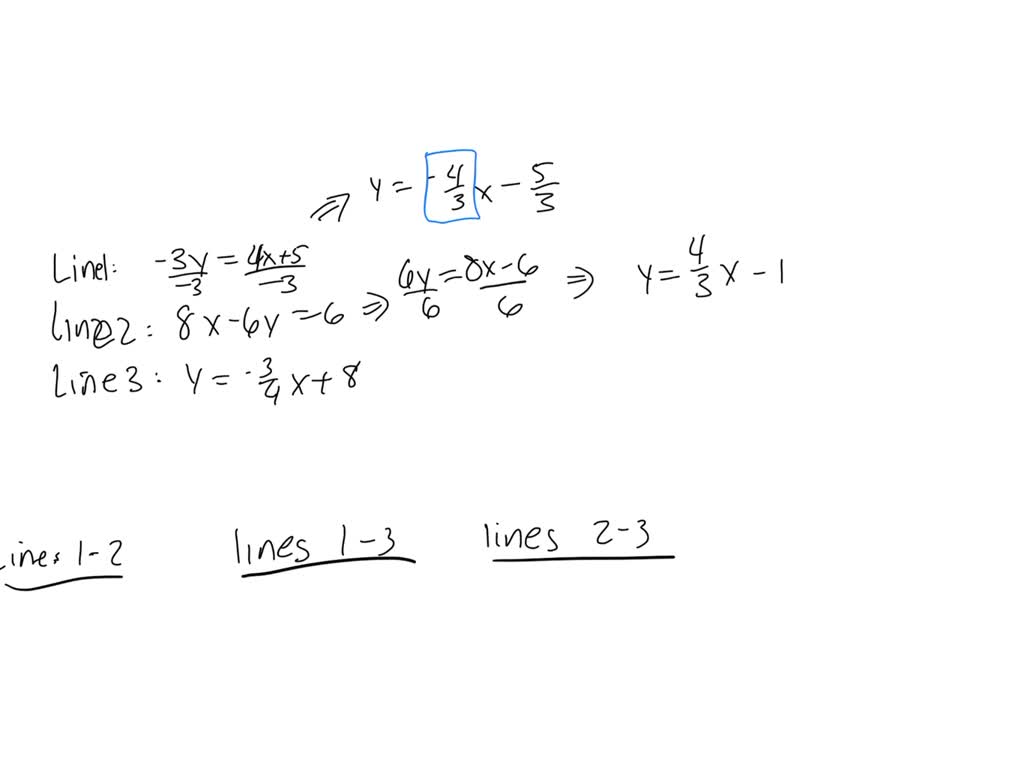 ⇒ y = -4/3 x - 5/3
Line1: -3y/-3 = 4x+5/-3
Line2: 8x-6y = -6 ⇒ 6y/6 = 8x-6/6 ⇒ y = 4/3 x - 1
Line3: y = -3/4 x + 8
Lines 1-2 lines 1-3 lines 2-3